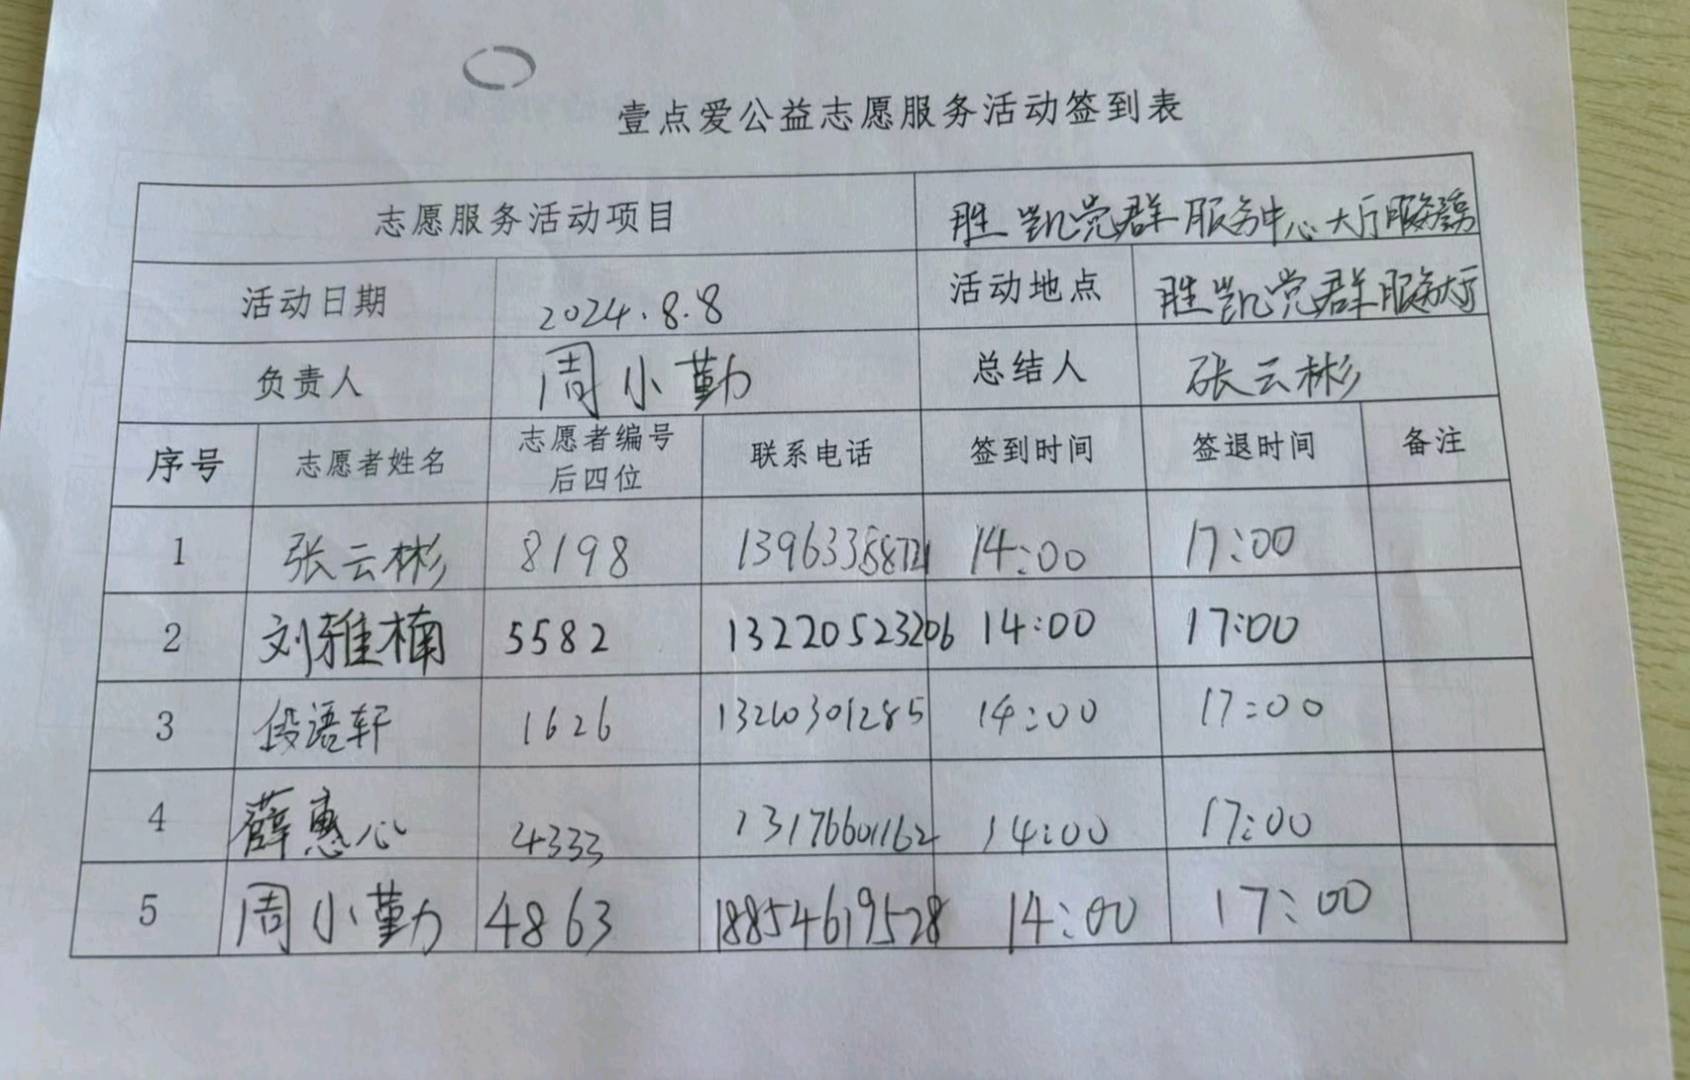 壹点爱公益志愿服务活动签到表
志愿服务活动项目 胜凯党群服务中心大厅服务
活动日期 2024.8.8 活动地点 胜凯党群服务大厅
负责人 周小勤 总结人 张云彬
序号 志愿者姓名 志愿者编号后四位 联系电话 签到时间 签退时间 备注
1 张云彬 8198 14:00 17:00
2 刘雅楠 5582 13220523206 14:00 17:00
3 段语轩 1626 13210301285 14:00 17:00
4 薛惠心 4333 13176601162 14:00 17:00
5 周小勤 4863 18854619528 14:00 17:00